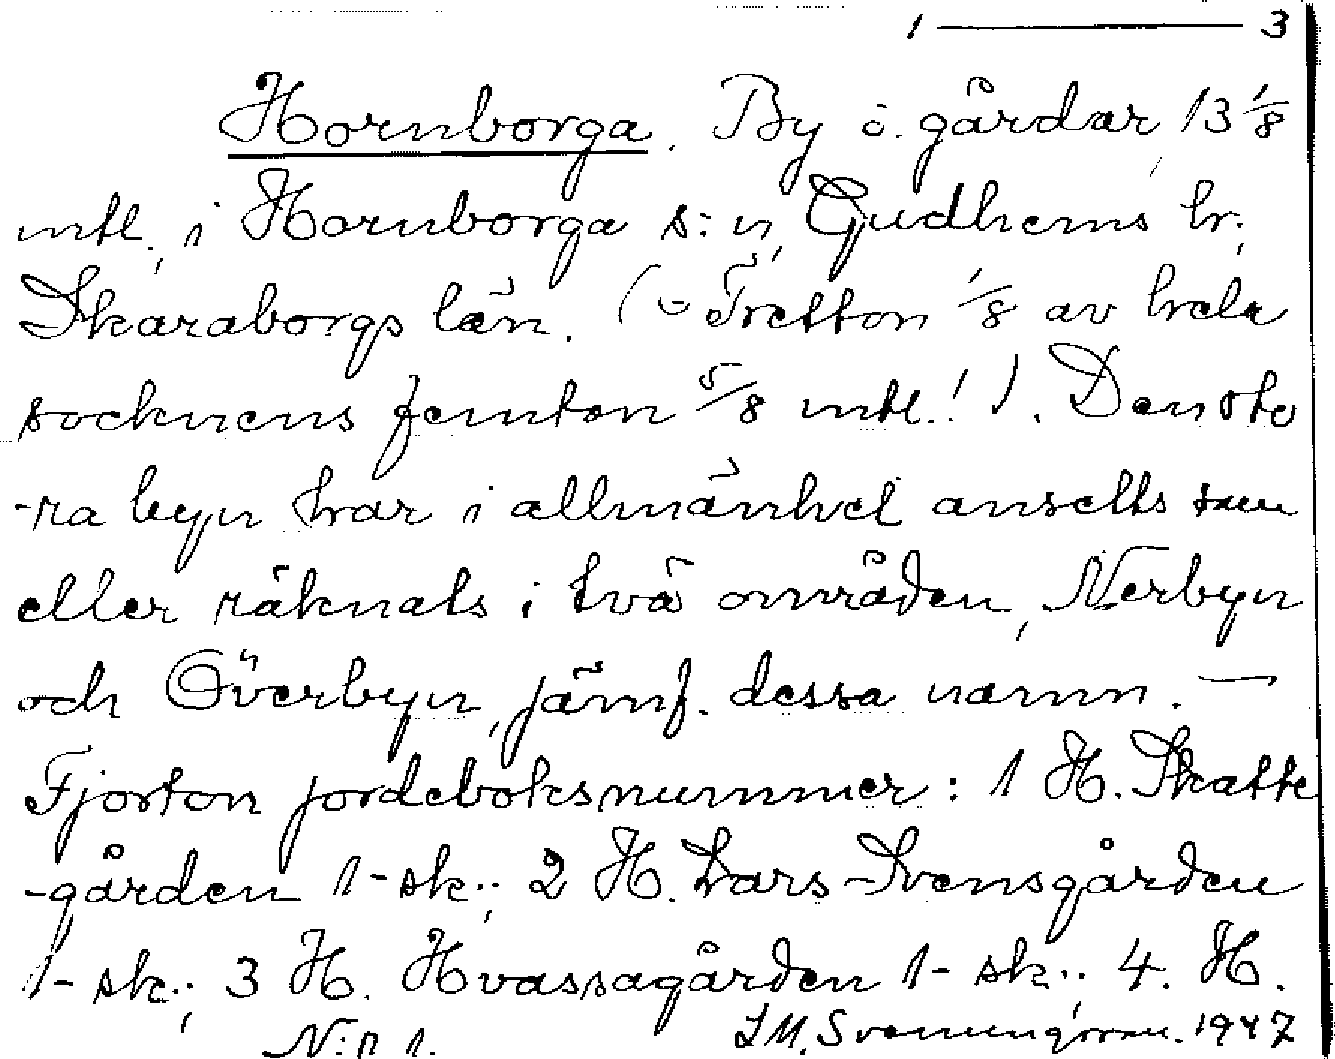 1 — 3
Hornborga. By o. gårdar, 13 1/8
mtl, i Hornborga s:n, Gudhems hr;
Skaraborgs län. (= Tretton 1/8 av hela
socknens femton 5/8 mtl.!). Den sto
-ra byn har i allmänhet ansetts som
eller räknats i två områden, Nerbyn
och Överbyn, jämf. dessa namn. —
Fjorton jordeboksnummer: 1 H. Skatte
-gården 1-sk.; 2 H. Lars-Svensgården
1-sk.; 3 H. Hvassagården 1- sk.; 4. H.
N:o 1. 1947